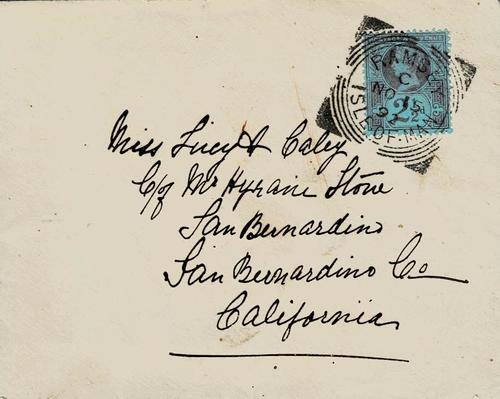 RAMSEY
C
NO
92
ISLE-OF-MAN
2½
Miss Lucy A Caley
C/o Mr Hyrain Stone
San Bernardino
San Bernardino Co
California